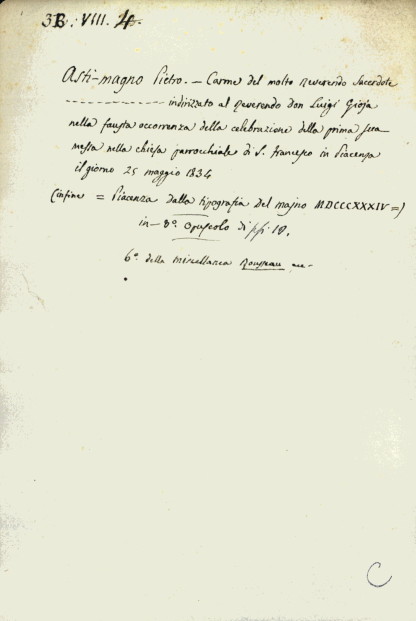 3B. VIII. 4.
Asti-magno Pietro. — Carme del molto Reverendo Sacerdote
- - - - - - - - - - - - - - indirizzato al Reverendo don Luigi Gioja
nella fausta occorrenza della celebrazione della prima sua
messa nella chiesa parrocchiale di S. Francesco in Piacenza
il giorno 25 maggio 1834
(infine = Piacenza dalla tipografia Del Majno MDCCCXXXIV =)
in-8º. Opuscolo di pp. 10.
6º. della miscellanea
C